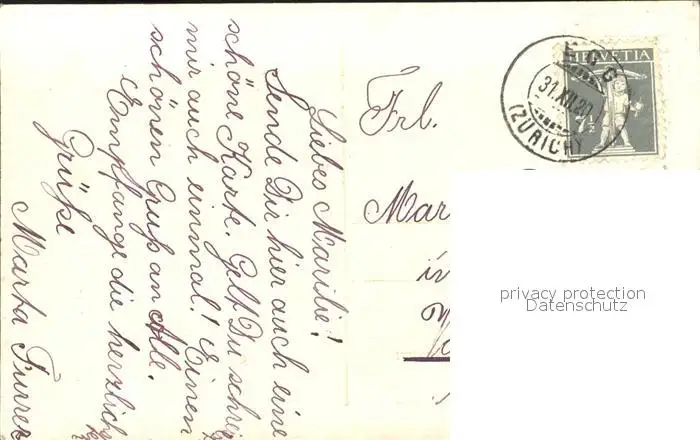 Liebes Marilie!
Sende Dir hier auch eine
schöne Karte. Gelt Du schrei
mir auch einmal! Einen
schönen Gruß an Alle.
Empfange die herzlich
Grüße
Marta Furrer
Frl.
Mar
in
HELVETIA
7½
EGG
31.XII.20
(ZÜRICH)
privacy protection
Datenschutz